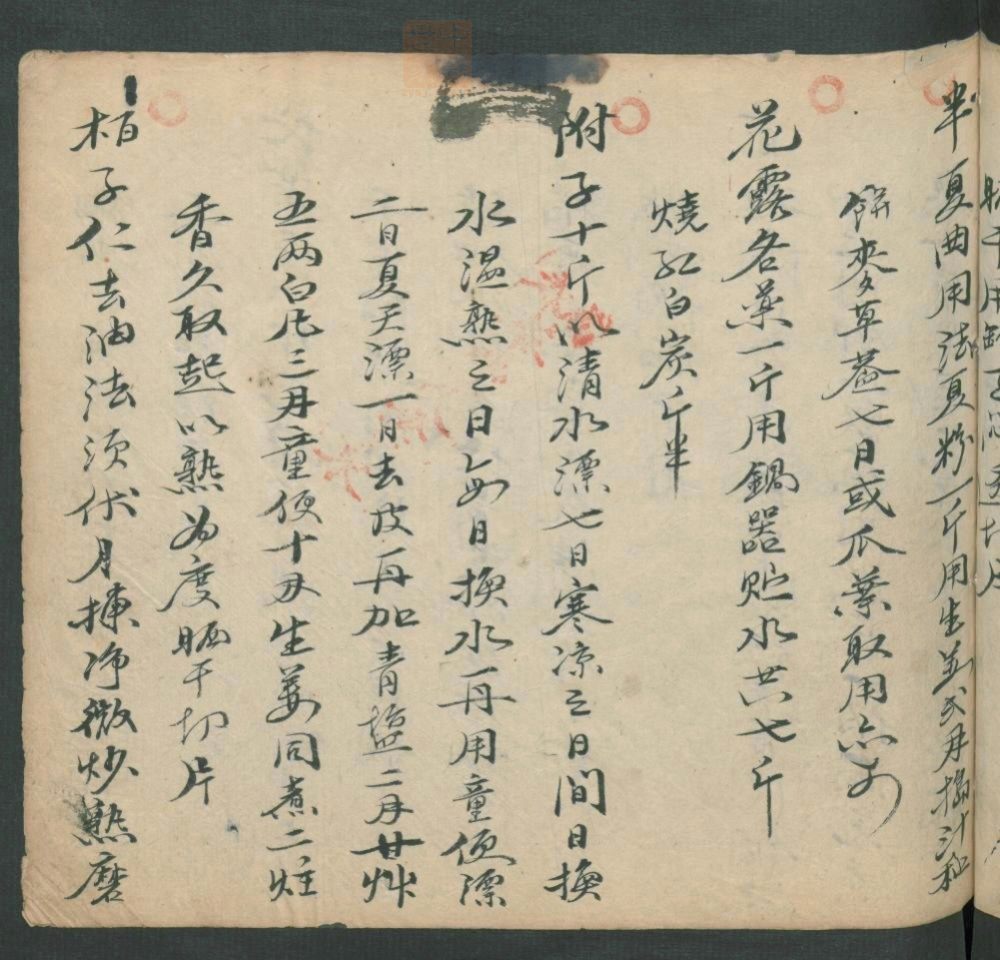 半夏曲用法夏粉一斤用生姜弍両搗汁和
餅麥草葢七日或瓜葉取用亦可
花露各藥一斤用鍋器貯水共七斤
燒紅白炭斤半
附子十斤以清水漂七日寒凉之日間日換
水温熱之日每日換水一再用童便漂
二日夏天漂一日去皮再加青盐二両甘草
五两白凡三両童便十両生姜同煮二炷
香久取起以熟為度晒干切片
栢子仁去油法須伏月揀净微炒熟磨